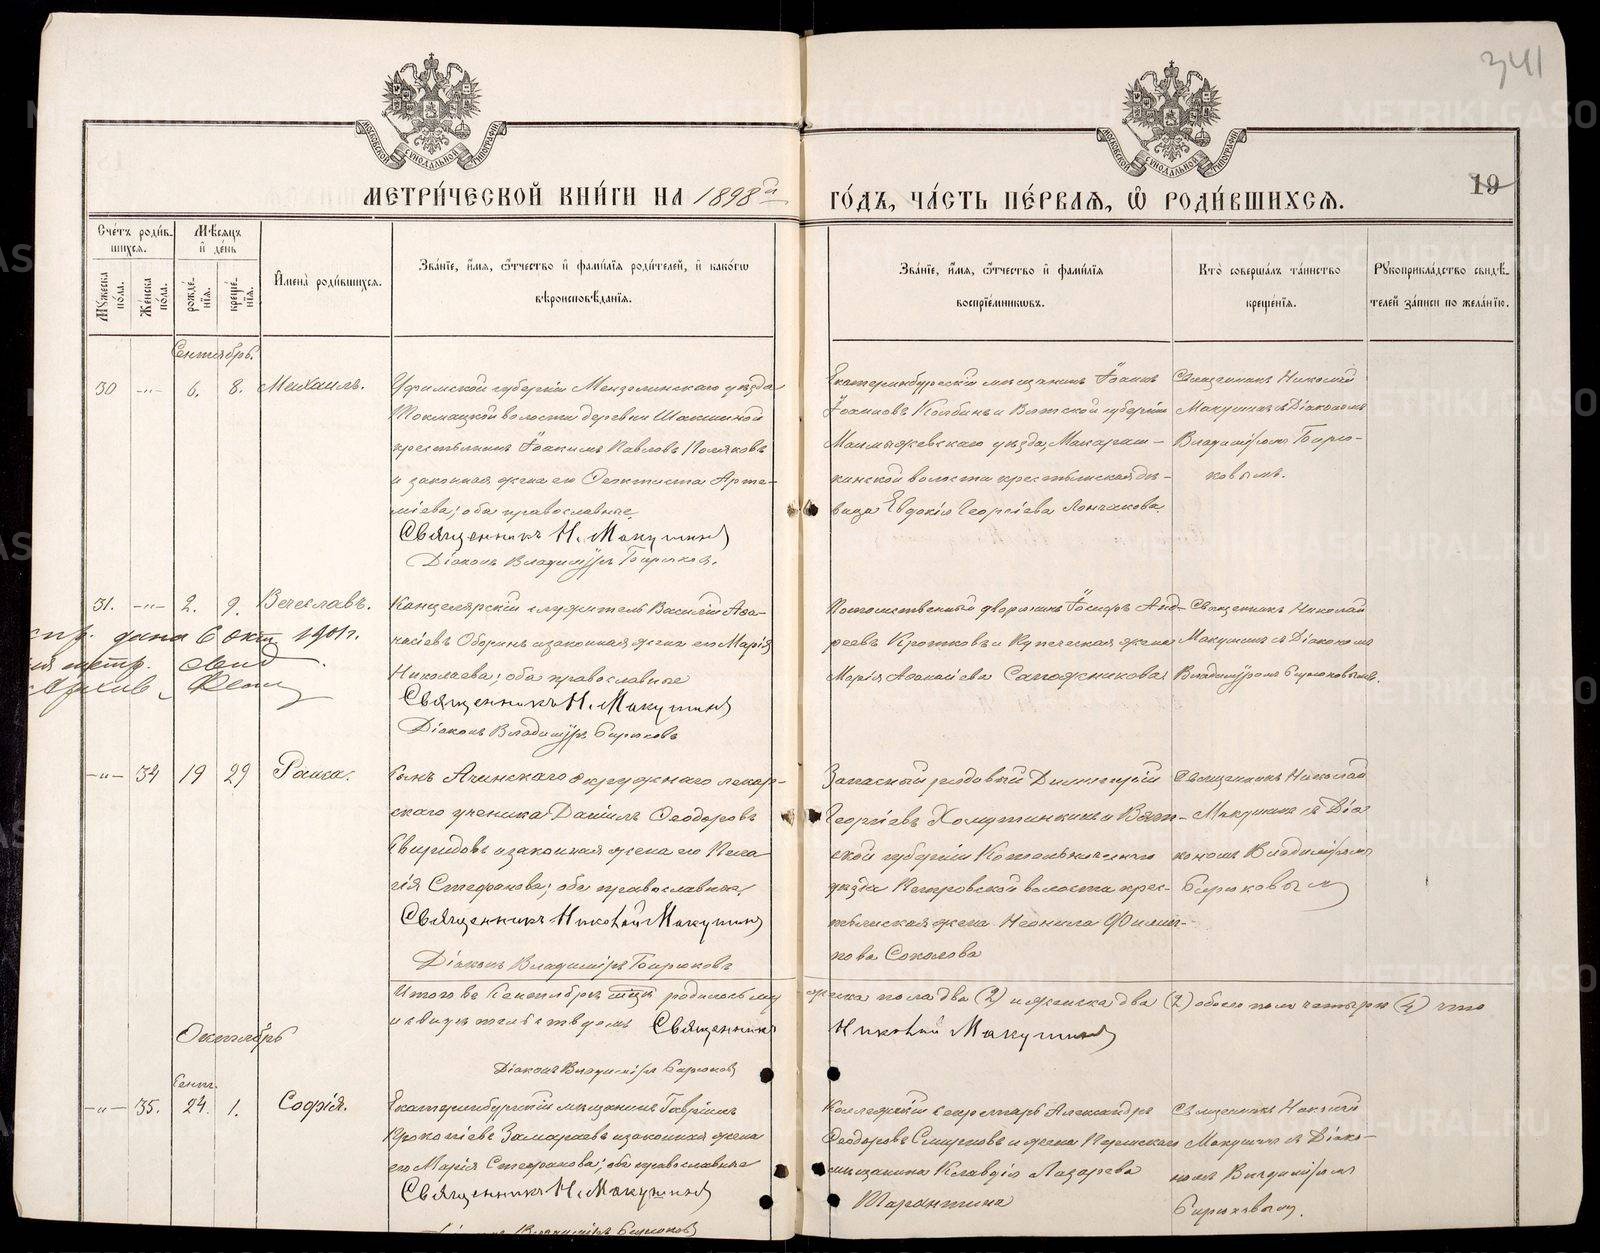 341
19
МОСКОВСКОЙ СѴНОДАЛЬНОЙ ТИПОГРАФІИ
МОСКОВСКОЙ СѴНОДАЛЬНОЙ ТИПОГРАФІИ
МЕТРИ́ЧЕСКОЙ КНИ́ГИ НА 1898й ГО́ДЪ, ЧА́СТЬ ПЕ́РВАЯ, Ѡ҆ РОДИ́ВШИХСЯ.
Сче́тъ роди́в-
шихся.
Мѣ́сяцъ
и҆ де́нь
Мꙋжеска по́ла.
Же́нска по́ла.
рожде́нїя.
креще́нїя.
И҆мена̀ роди́вшихся.
Зва́нїе, и҆́мя, ѻ҆́тчество и҆ фами́лїя роди́телей, и҆ како́гѡ
вѣроисповѣ́данїя.
Зва́нїе, и҆́мя, ѻ҆́тчество и҆ фами́лїя
воспрїе́мникѡвъ.
Кто̀ соверша́лъ та́инство
креще́нїя.
Рꙋкоприкла́дство свидѣ́-
телей за́писи по жела́нїю.
Сентябрь.
30 -"- 6. 8. Михаилъ.
Уфимской губерніи Мензелинскаго уѣзда
Токмацкой волости деревни Шакшиной
крестьянинъ Іоакимъ Павловъ Поляковъ
и законная жена его Ѳеоктиста Арте-
міева; оба православные.
Священникъ Н. Макушинъ
Діаконъ Владиміръ Бирюковъ.
Екатеринбургскій мѣщанинъ Іоаннъ
Іоанновъ Колбинъ и Вятской губерніи
Малмыжевскаго уѣзда,
волости крестьянская дѣ-
вица Евдокія Георгіева
Священникъ Николай
Макушинъ съ Діакономъ
Владиміромъ Бирю-
ковымъ.
31. -"- 2. 9. Вячеславъ.
дана 6 окт 1901 г.
метр.
Канцелярскій служитель Василій Аѳа-
насіевъ Оборинъ и законная жена его Марія
Николаева; оба православные
Священникъ Н. Макушинъ
Діаконъ Владиміръ Бирюковъ
Потомственный дворянинъ Іосифъ Анд-
реевъ Кротковъ и Купеческая жена
Марія Сапожникова
Священникъ Николай
Макушинъ съ Діакономъ
Владиміромъ Бирюковымъ.
-"- 34 19 29 Раиса.
Ачинскаго окружнаго лекар-
скаго ученика Даніилъ Ѳеодоровъ
Свиридовъ и законная жена его Пела
гія Стефанова; оба православные.
Священникъ Николай Макушинъ
Діаконъ Владиміръ Бирюковъ
Запасный рядовой Димитрій
Георгіевъ Хомутинкинъ и Вят-
ской губерніи Котельническаго
уѣзда Петровской волости крес-
тьянская жена Неонила Филип-
пова Соколова
Священникъ Николай
Макушинъ съ Діа
кономъ Владиміромъ
Бирюковымъ
Итого въ Сентябрѣ мцѣ родилось му жеска пола два (2) и женска два (2) обоего пола четыре (4) что
и свидѣтельствуемъ Священникъ Николай Макушинъ
Діаконъ Владиміръ Бирюковъ
Октябрь
Сент.
-"- 35. 24. 1. Софія.
Екатеринбургскій мѣщанинъ Гавріилъ
Прокопіевъ Замараевъ и законная жена
его Марія Стефанова; оба православные
Священникъ Н. Макушинъ
Діаконъ Владиміръ Бирюковъ
Коллежскій секретарь Александръ
Ѳеодоровъ Смирновъ и жена Пермскаго
мѣщанина Клавдія Лазарева
Тарантина
Священникъ Николай
Макушинъ съ Діако-
номъ Владиміромъ
Бирюковымъ.
METRIKI.GASO-URAL.RU